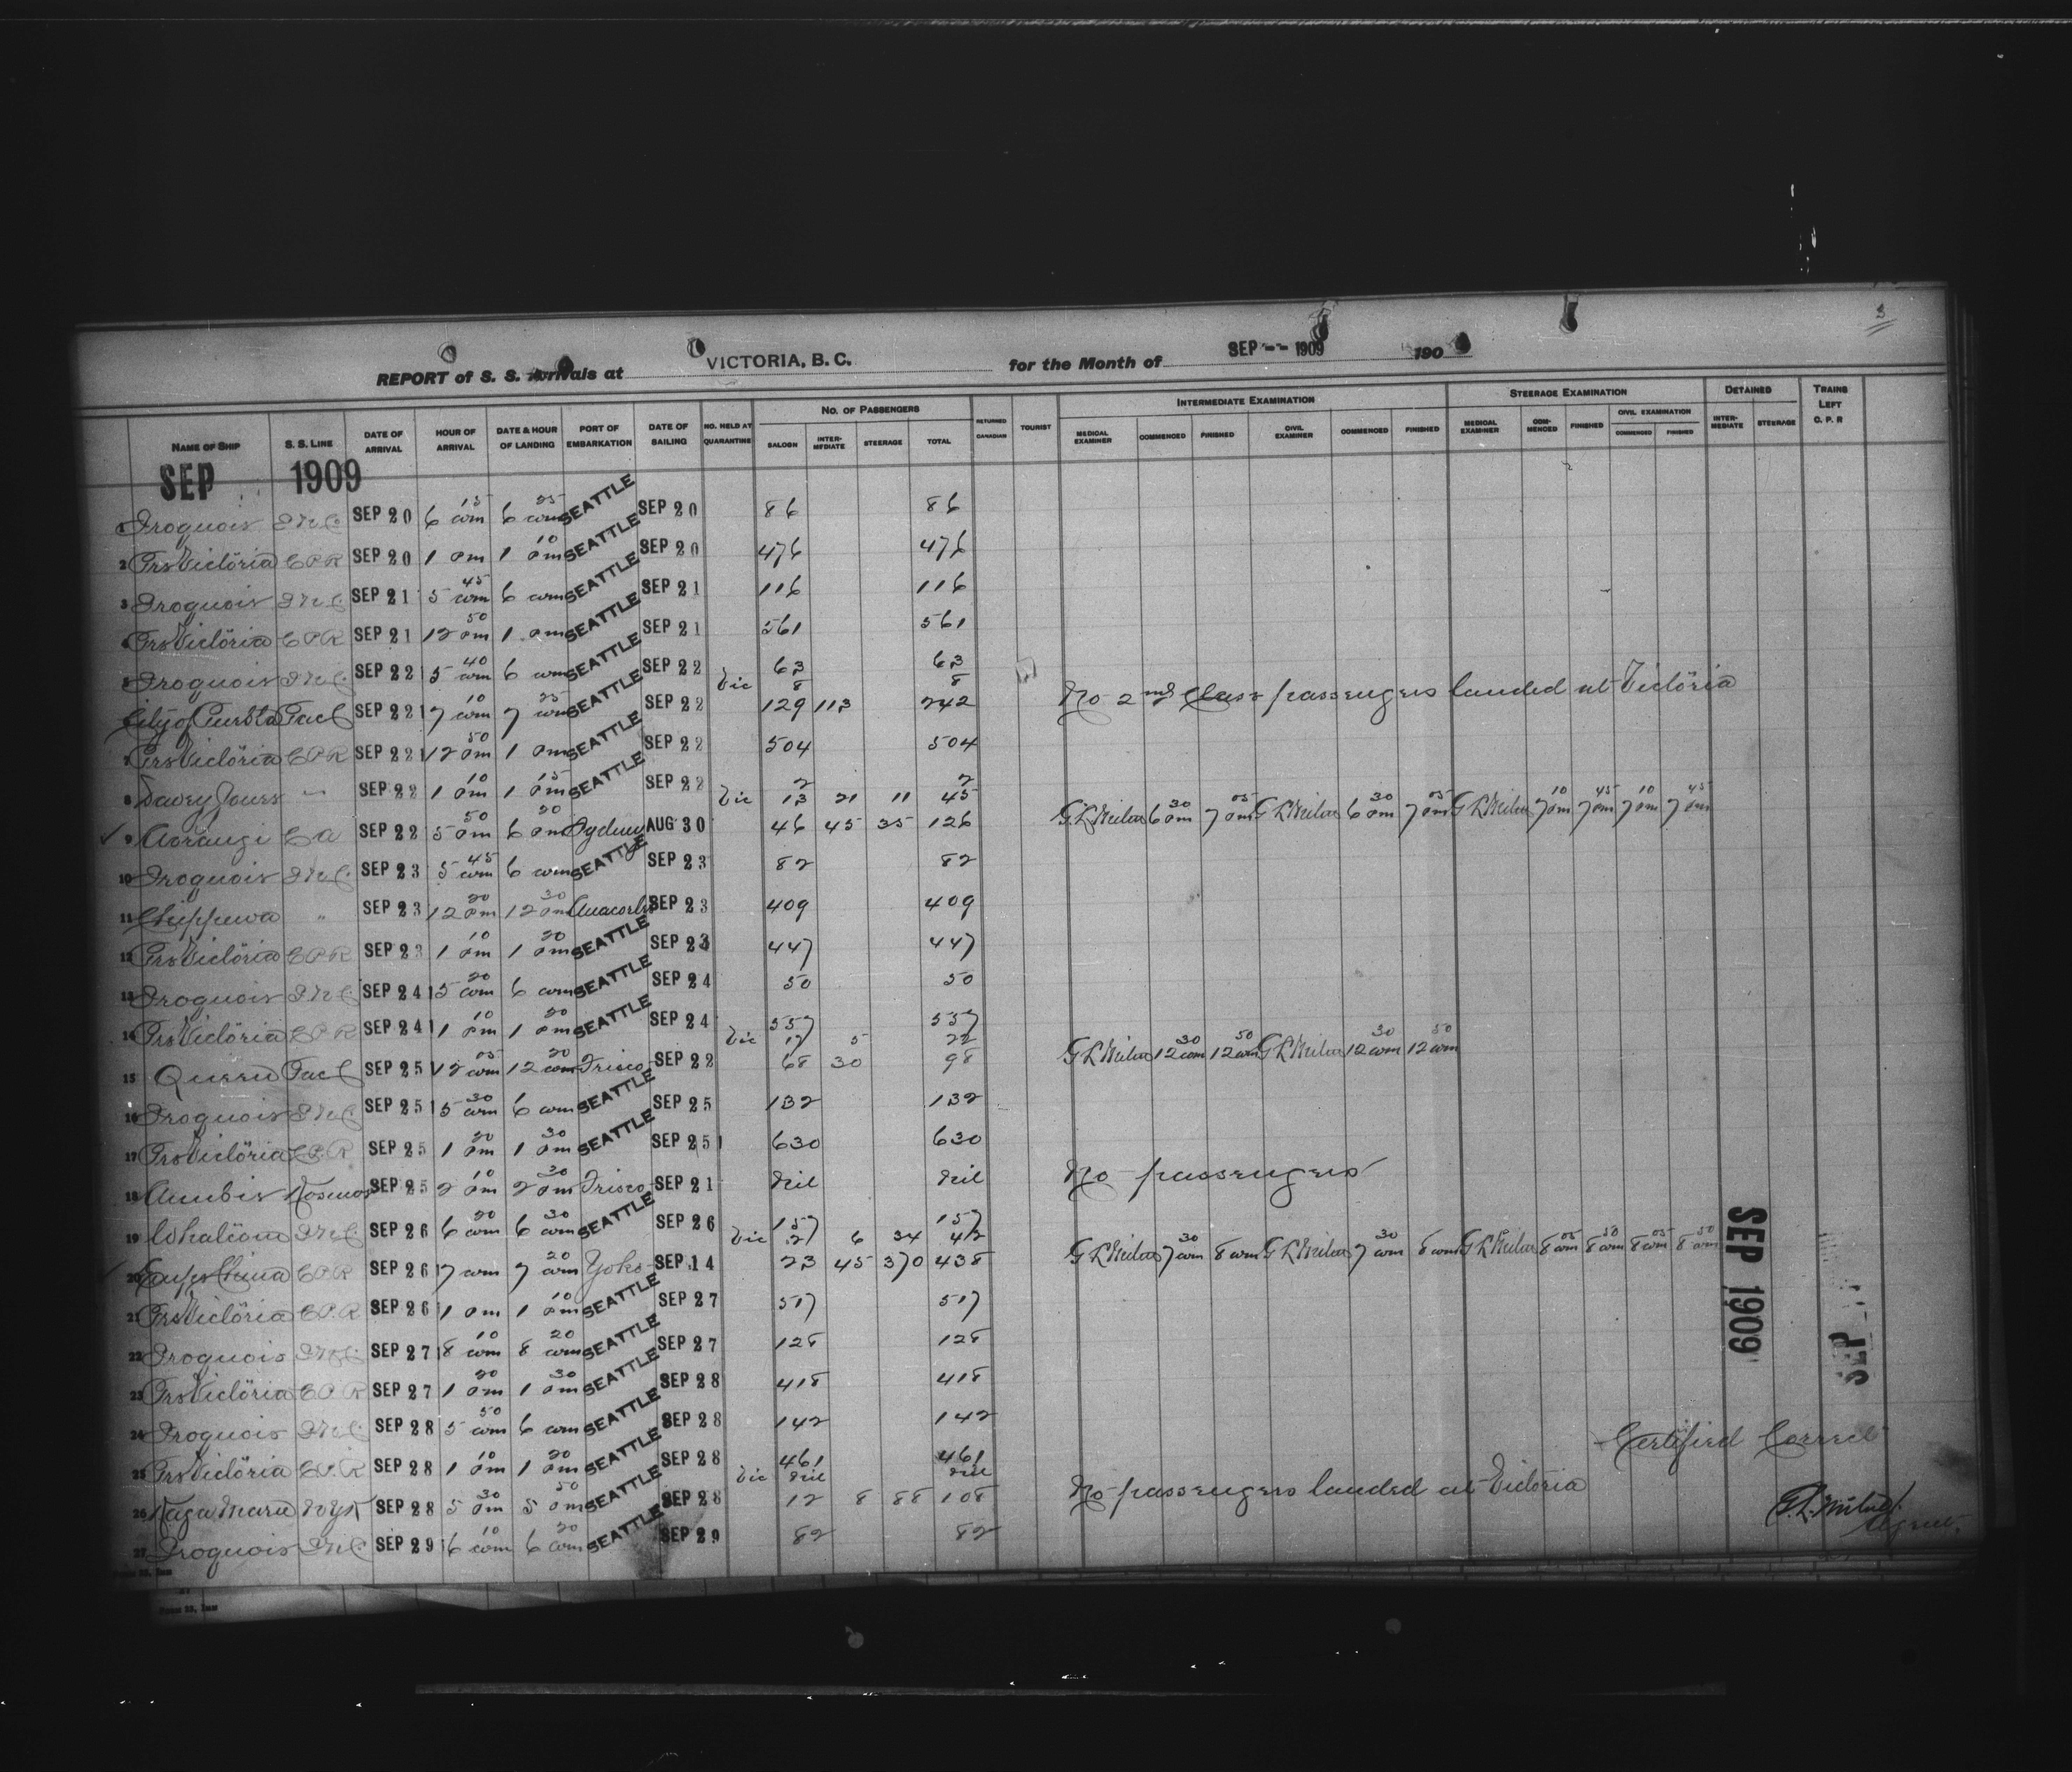 3
REPORT of S. S. Arrivals at VICTORIA, B. C. for the Month of SEP -- 1909 190
NAME OF SHIP S. S. LINE DATE OF ARRIVAL HOUR OF ARRIVAL DATE & HOUR OF LANDING PORT OF EMBARKATION DATE OF SAILING NO. HELD AT QUARANTINE NO. OF PASSENGERS SALOON INTER-MEDIATE STEERAGE TOTAL RETURNED CANADIAN TOURIST INTERMEDIATE EXAMINATION MEDICAL EXAMINER COMMENCED FINISHED CIVIL EXAMINER COMMENCED FINISHED STEERAGE EXAMINATION MEDICAL EXAMINER COM-MENCED FINISHED CIVIL EXAMINATION COMMENCED FINISHED DETAINED INTER-MEDIATE STEERAGE TRAINS LEFT C. P. R
SEP 1909
1 Iroquois INC SEP 20 6 15 am 6 25 am SEATTLE SEP 20 86 86
2 PrsVictoria CPR SEP 20 1 pm 1 10 pm SEATTLE SEP 20 476 476
3 Iroquois INC SEP 21 5 45 am 6 am SEATTLE SEP 21 116 116
4 PrsVictoria CPR SEP 21 12 50 pm 1 pm SEATTLE SEP 21 561 561
5 Iroquois INC SEP 22 5 40 am 6 am SEATTLE SEP 22 63 63
Vic 8 8
City of Puebla PacC SEP 22 7 10 am 7 25 am SEATTLE SEP 22 129 113 242 No 2nd Class passengers landed at Victoria
7 PrsVictoria CPR SEP 22 12 50 pm 1 pm SEATTLE SEP 22 504 504
8 Davey Jones " SEP 22 1 10 pm 1 15 pm SEATTLE SEP 22 2 2
Vic 13 21 11 45
9 Aorangi CA SEP 22 5 50 pm 6 20 pm Sydney AUG 30 46 45 35 126 G L Milne 6 30 pm 7 05 pm G L Milne 6 30 pm 7 05 pm G L Milne 7 10 pm 7 45 pm 7 10 pm 7 45 pm
10 Iroquois INC SEP 23 5 45 am 6 am SEATTLE SEP 23 82 82
11 Chippewa " SEP 23 12 20 pm 12 30 pm Anacortes SEP 23 409 409
12 PrsVictoria CPR SEP 23 1 10 pm 1 20 pm SEATTLE SEP 23 447 447
13 Iroquois INC SEP 24 5 20 am 6 am SEATTLE SEP 24 50 50
14 PrsVictoria CPR SEP 24 1 10 pm 1 20 pm SEATTLE SEP 24 557 557
Vic 17 5 22
15 Queen PacC SEP 25 12 05 am 12 20 am Frisco SEP 22 68 30 98 G L Milne 12 30 am 12 50 am G L Milne 12 30 am 12 50 am
16 Iroquois INC SEP 25 5 30 am 6 am SEATTLE SEP 25 132 132
17 PrsVictoria CPR SEP 25 1 20 pm 1 30 pm SEATTLE SEP 25 630 630
18 Anubis Kosmos SEP 25 2 10 pm 2 30 pm Frisco SEP 21 Nil Nil No passengers
19 Whatcom INC SEP 26 6 20 am 6 30 am SEATTLE SEP 26 157 157
Vic 2 6 34 42
20 EmprsChina CPR SEP 26 7 am 7 20 am Yoko SEP 14 23 45 370 438 G L Milne 7 30 am 8 am G L Milne 7 30 am 8 am G L Milne 8 05 am 8 50 am 8 05 am 8 50 am
21 PrsVictoria CPR SEP 26 1 pm 1 10 pm SEATTLE SEP 27 517 517
22 Iroquois INC SEP 27 8 10 am 8 20 am SEATTLE SEP 27 128 128
23 PrsVictoria CPR SEP 27 1 20 pm 1 30 pm SEATTLE SEP 28 418 418
24 Iroquois INC SEP 28 5 50 am 6 am SEATTLE SEP 28 142 142
25 PrsVictoria CPR SEP 28 1 10 pm 1 20 pm SEATTLE SEP 28 461 461
Vic Nil Nil
26 Kaga Maru NYK SEP 28 5 30 pm 5 50 pm SEATTLE SEP 28 12 8 88 108 No passengers landed at Victoria
27 Iroquois INC SEP 29 6 10 am 6 20 am SEATTLE SEP 29 82 82
SEP 1909
SEP
Certified Correct
G. L. Milne
Agent.